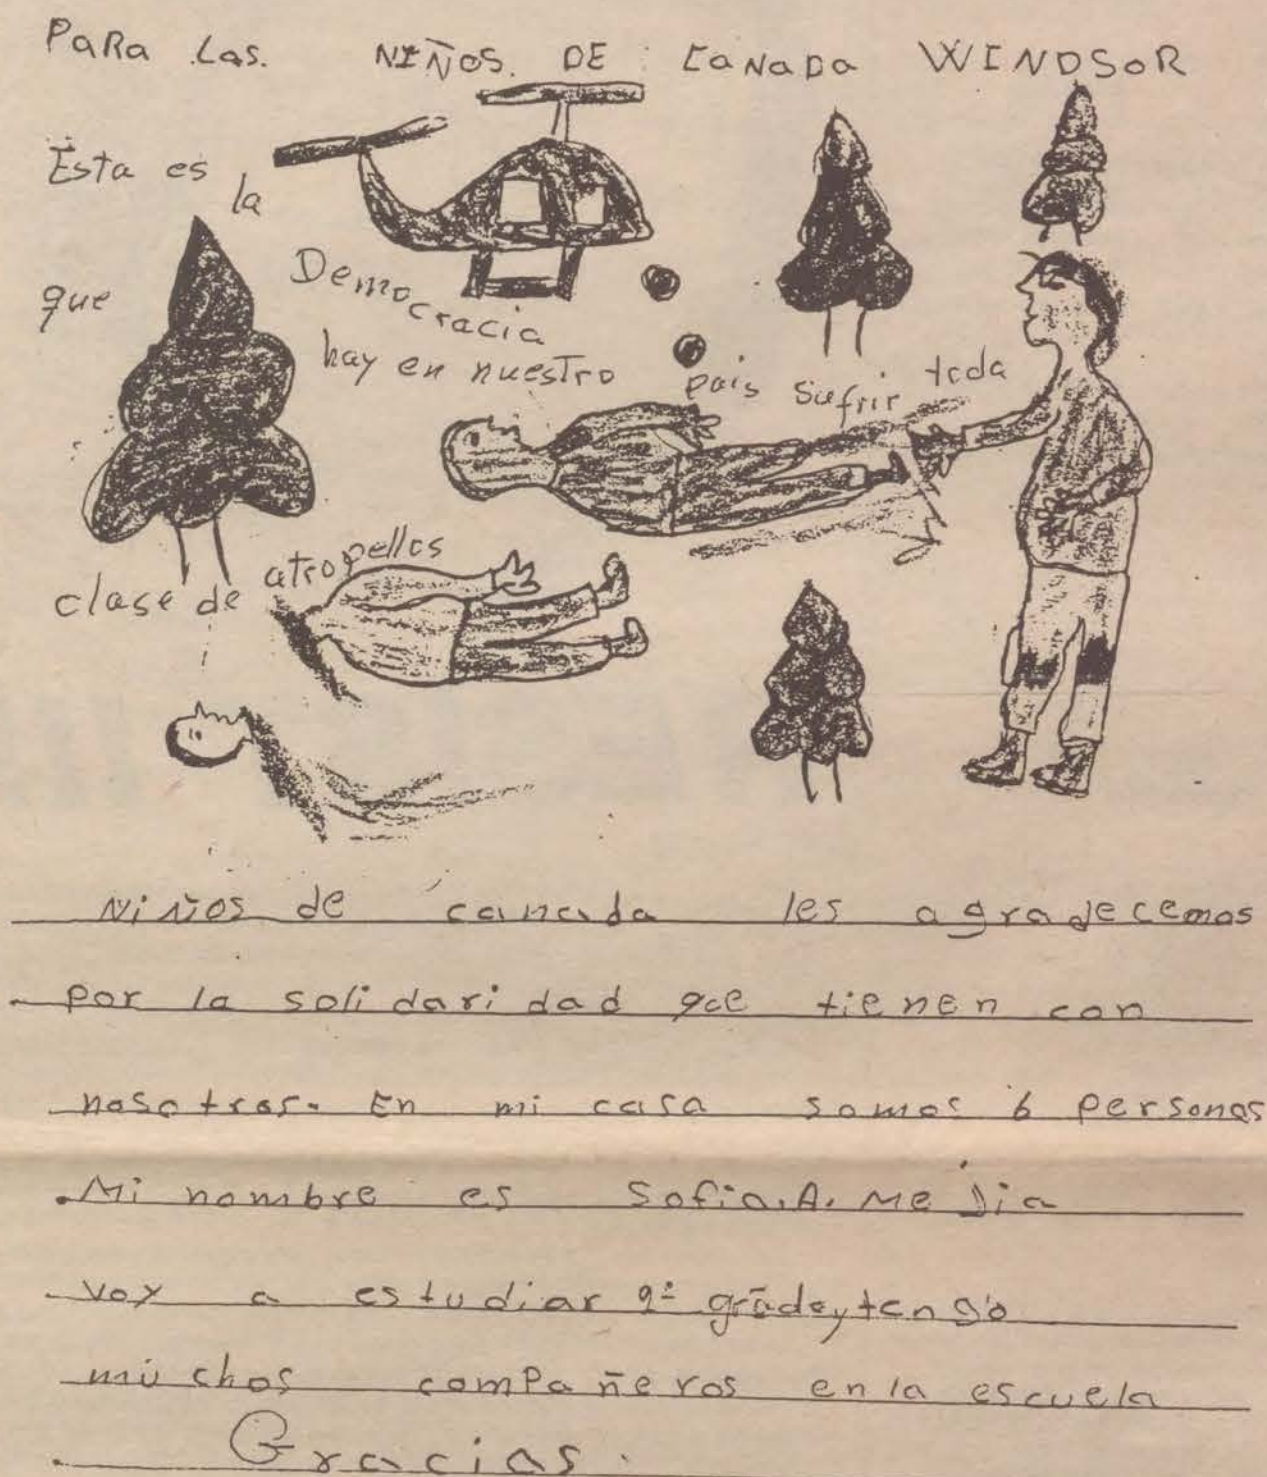 PaRa Las. NIÑOS. DE CaNaDa WINDSOR
Esta es la
que Democracia
hay en nuestro pais sufrir toda
clase de atropellos
Niños de canada les agradecemos
por la solidaridad que tienen con
nosotros. En mi casa somos 6 personas
Mi nombre es Sofia. A. Mejia
voy a estudiar 9º grado, y tengo
muchos compañeros en la escuela
Gracias.